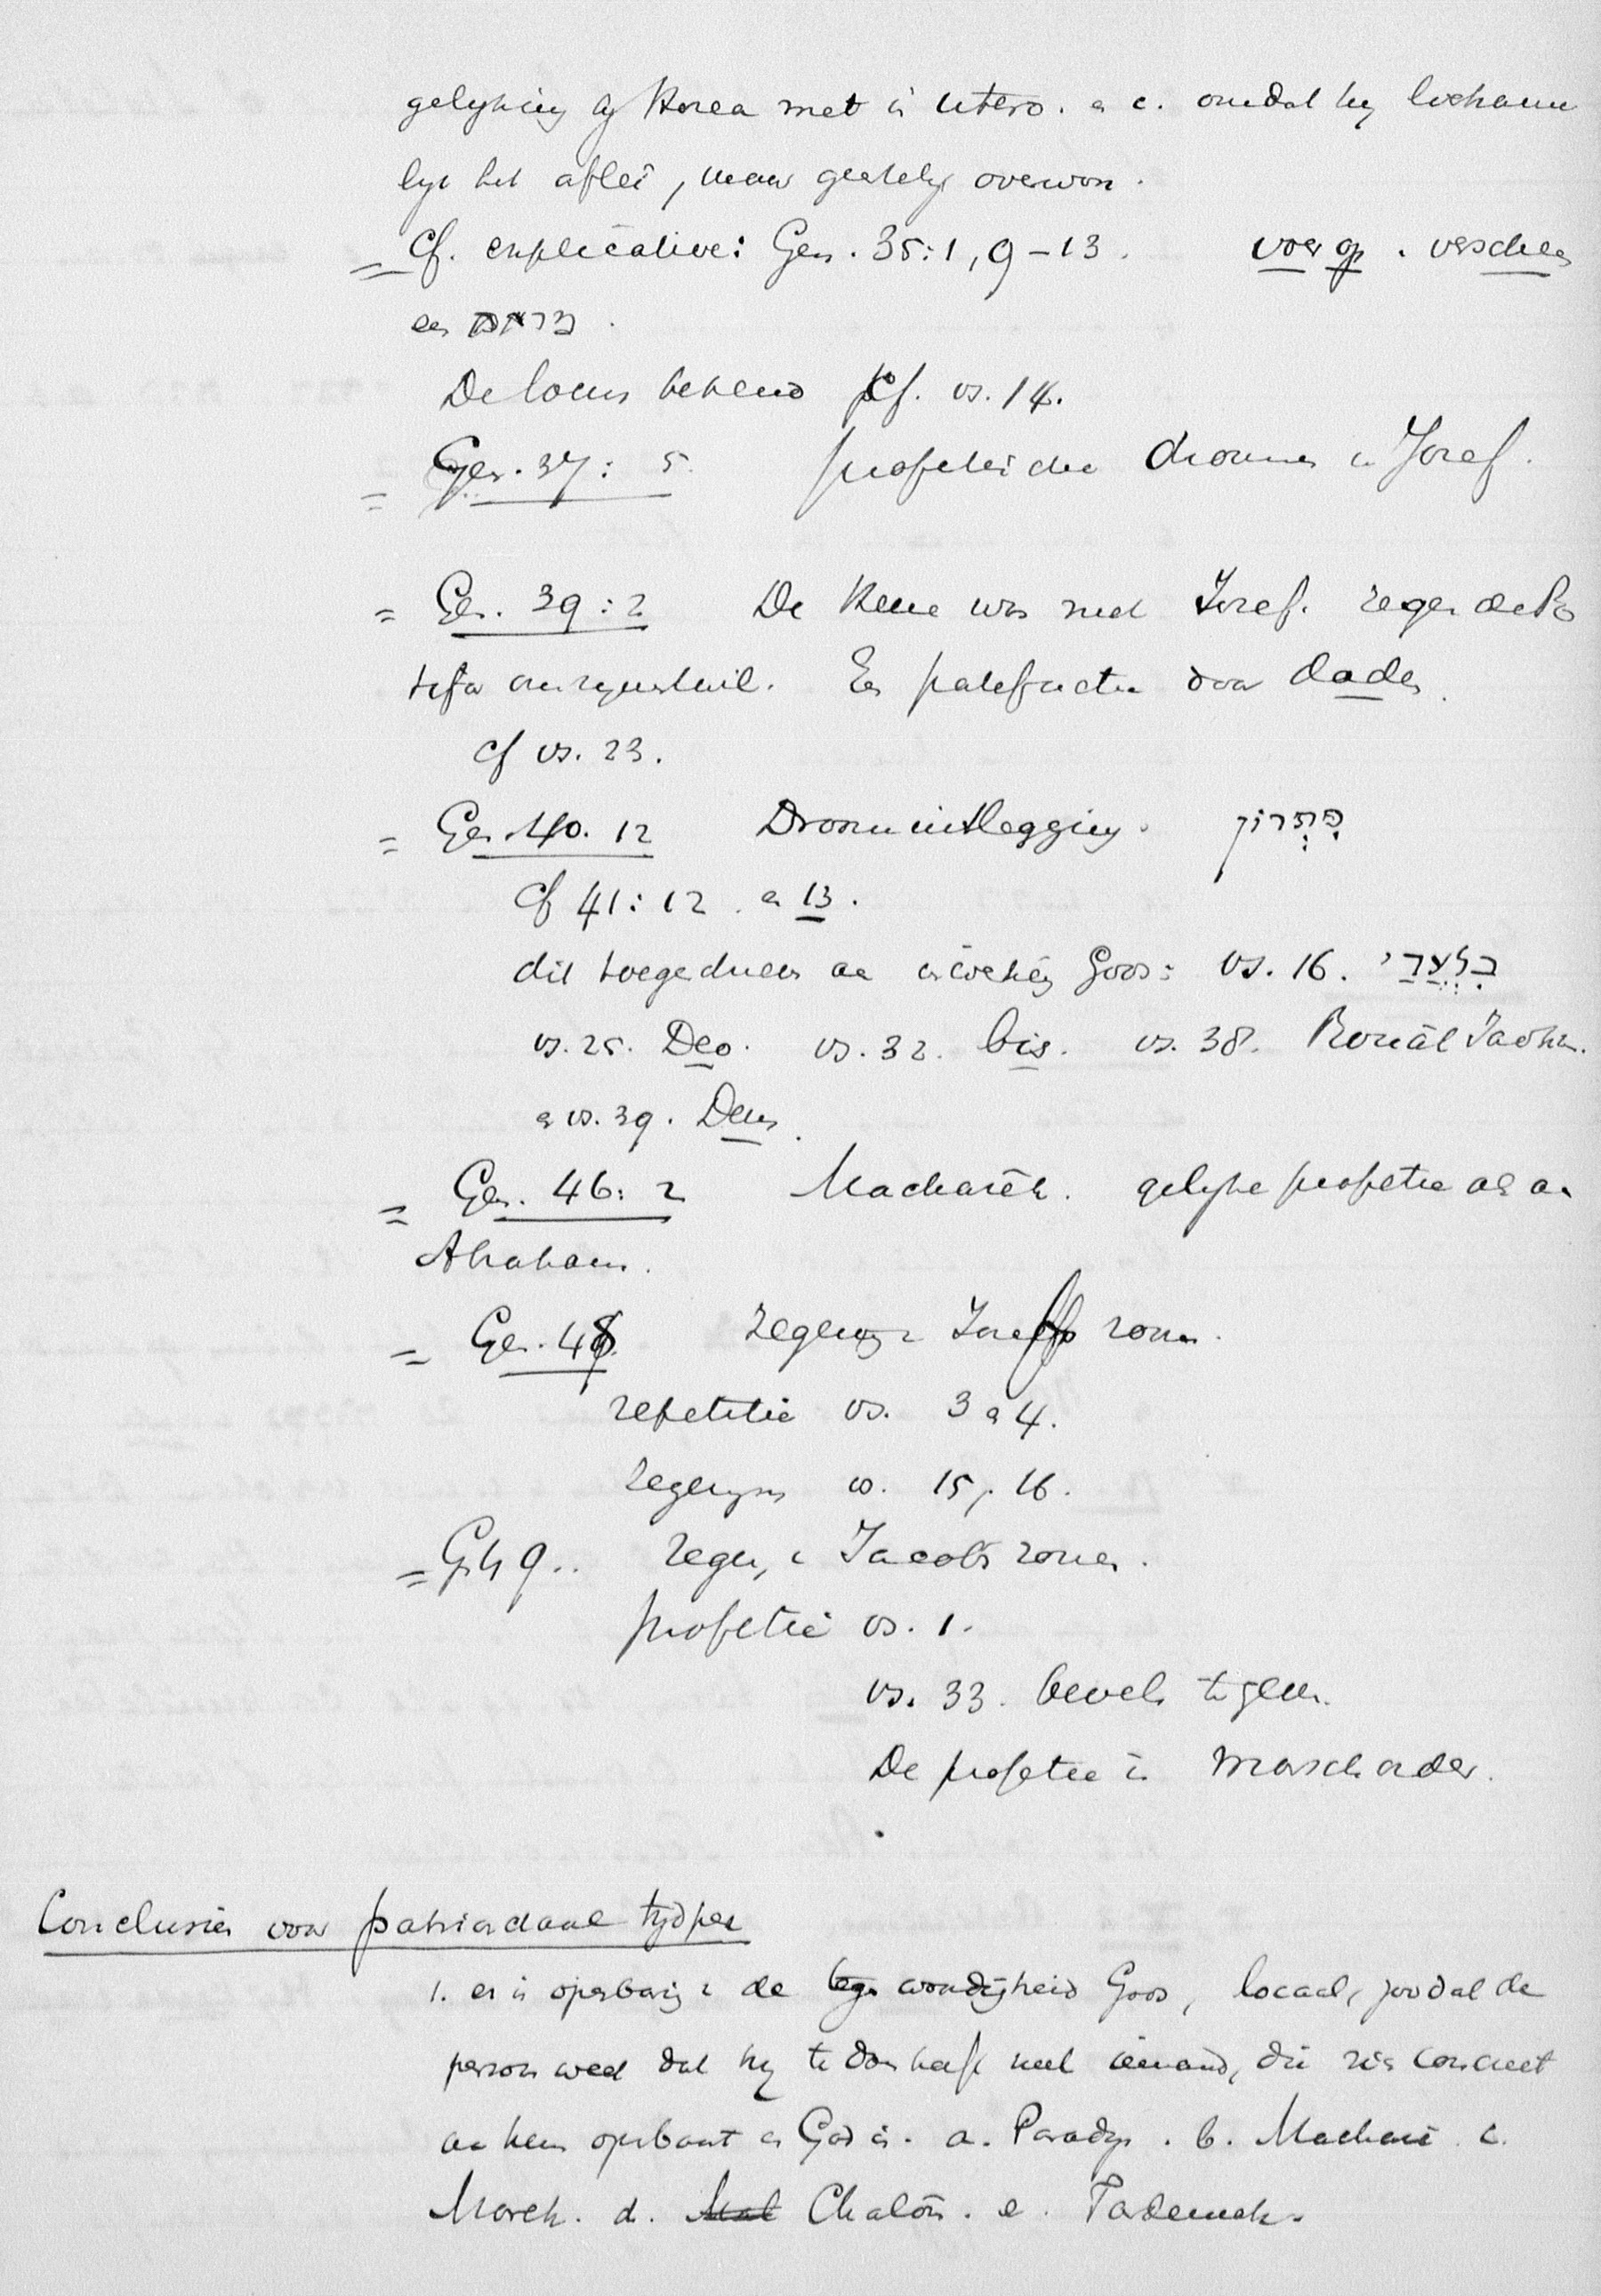 gelyking by Hosea met in utero. en c. omdat hy lichame
lyk het aflei, maar geestelyk overwon.
= Cf. explicative: Gen. 35:1, 9-13. voer op. verscheen
en
De locus bekend cf. vs. 14.
= Gen. 37: 5. profetische droomen in Josef.
= Gen. 39:2 De Heere was met Josef. zegen de Po
tifar om zynentwil. En patefactie door daden.
cf vs. 23.
= Gen. 40. 12 Droomuitlegging. פִּתְרוֹן
Cf 41:12. en 13.
dit toegeschreven aan inwerking Gods: vs. 16. בִּלְעָדָי
vs. 25. Deo. vs. 32. bis. vs. 38. Rouäch Jaohh.
en vs. 39. Deus.
= Gen. 46: 2 Machazeh. gelyke profetie als aan
Abraham.
= Gen. 48. zegening v Josefs zonen.
repetitie vs. 3 en 4.
zegening vs. 15, 16.
= G. 49.. zegen, v Jacobs zonen.
profetie vs. 1.
vs. 33. bevelen te geven.
De profetie in
Conclusies voor patriarchaal tydperk
1. er is openbaring v de tegenwoordigheid Gods, locaal, zoodat de
persoon weet dat hy te doen heeft met iemand, die zich concreet
aan hem openbaart en God is. a. Paradys. b. Machazé. c.
Moreh. d. Chalôm. e. Tardemah.